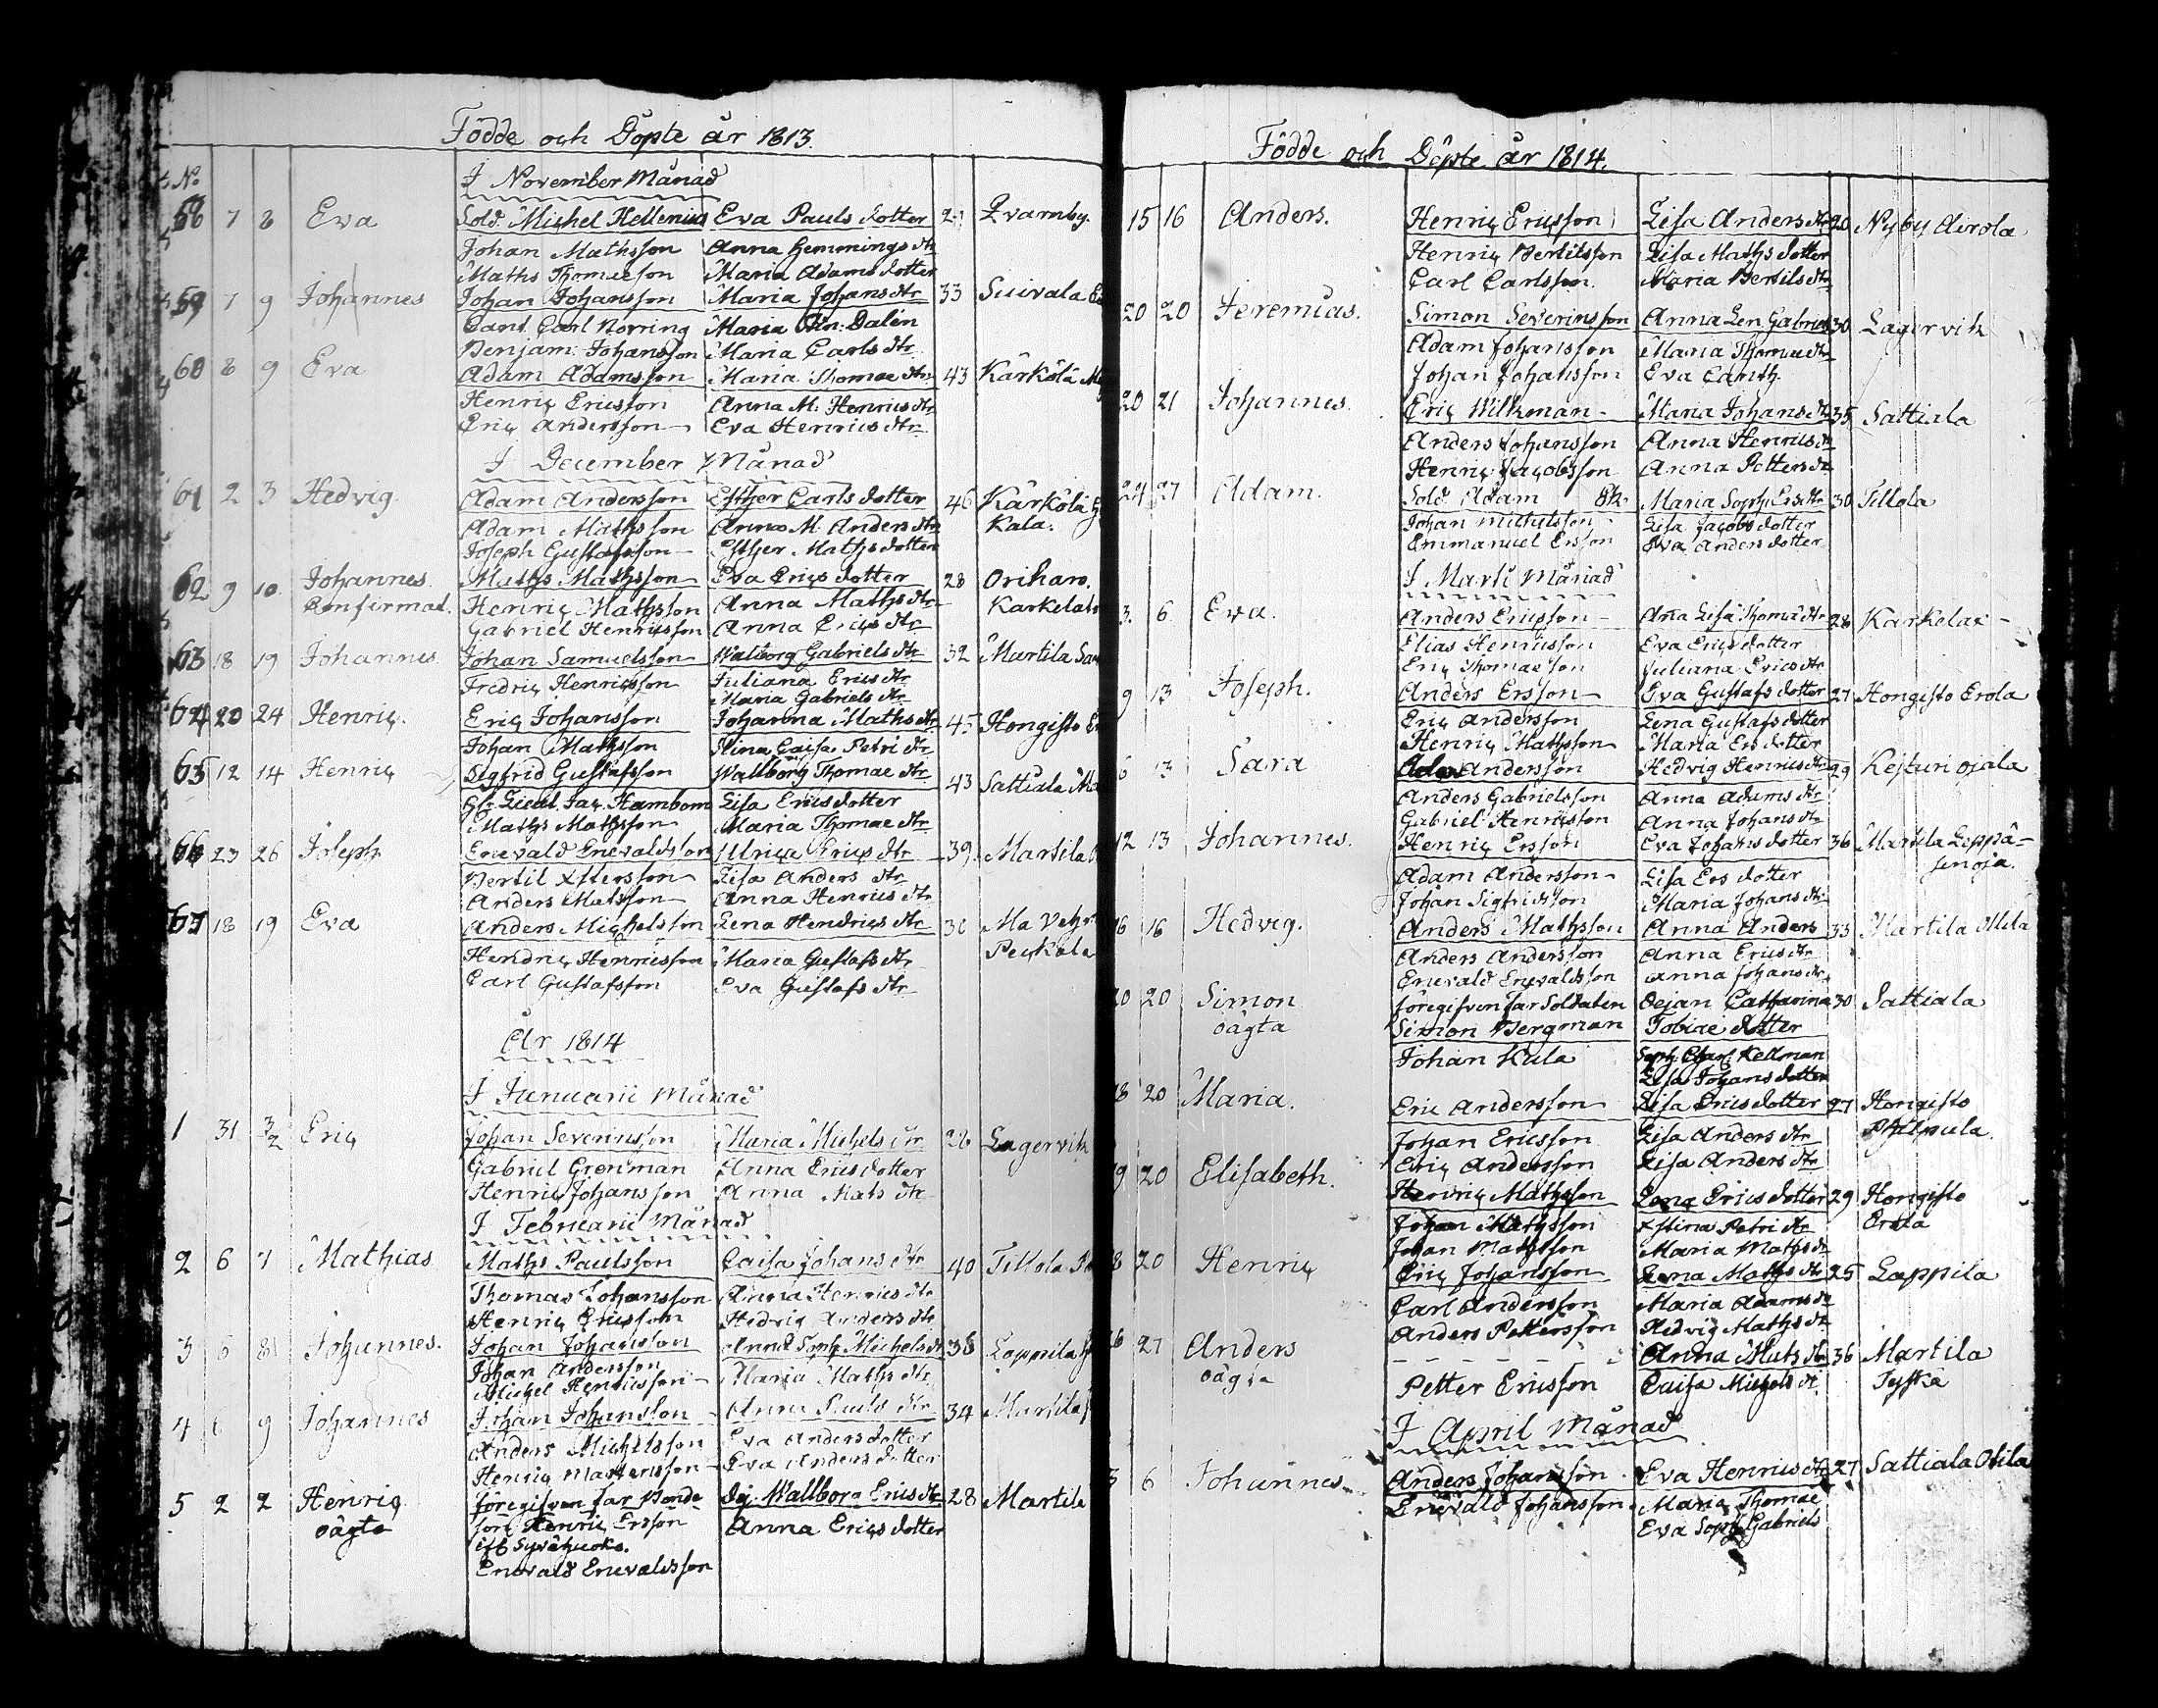 Födde och Döpte år 1813.
No
I November Månad
58 7 8 Eva Sold. Michel Hellenius Eva Pauls dotter Qvarnby.
Johan Mathsson Anna Hemmings dtr
Maths Thomæson Maria Adams dotter
59 7 9 Johannes Johan Johansson Maria Johans dtr 33 Suivala
Cant. Carl Norring Maria Chr: Dalen
Benjam: Johansson Maria Carls dtr
60 8 9 Eva Adam Adamsson Maria Thomæ dtr 43 Kärkölä
Henric Ericsson Anna M: Henrics dtr
Eric Andersson Eva Henrics dtr
I December Månad
61 2 3 Hedvig Adam Andersson Esther Carls dotter 46 Kärkölä
Adam Mathsson Anna M. Anders dtr Kala.
Joseph Gustafsson Esther Maths dotter
62 9 10 Johannes Maths Mathsson Eva Erics dotter 28 Orihan.
Confirmat. Henric Mathsson Anna Maths dtr
Gabriel Henricsson Anna Erics dtr
63 18 19 Johannes Johan Samuelsson Walborg Gabriels dtr 32 Martila
Fredric Henricsson Juliana Erics dtr
Maria Gabriels dtr
64 20 24 Henric. Eric Johansson Johanna Maths dtr 45 Hongisto
Johan Mathsson Stina Caisa Petri dtr
65 12 14 Henric Sigfrid Gustafsson Wallborg Thomæ dtr 43 Sattiala
Lieut. Jac. Lisa Erics dotter
Maths Mathsson Maria Thomæ dtr
66 23 26 Joseph Enevald Enevaldsson Ulrica Erics dtr 39 Martila
Bertil Lisa Anders dtr
Anders Matsson Anna Henrics dtr
67 18 19 Eva Anders Michelsson Lena Hendrics dtr
Hendric Henricsson Maria Gustafs dtr
Carl Gustafsson Eva Gustafs dtr
År 1814
I Januarii Månad
1 31 3/2 Eric Johan Severinsson Maria Michels dtr 28 Lagervik
Gabriel Grönman Anna Erics dotter
Henric Johansson Anna Mats dtr
I Februarii Månad
2 6 7 Mathias Maths Paulsson Caisa Johans dtr 40 Tillola
Thomas Johansson Anna Henrics dtr
Henric Ericsson Hedvig Anders dtr
3 6 8 Johannes. Johan Johansson Anna Soph. Michels dt 38 Lappila
Johan Andersson
Michel Henricsson Maria Maths dtr
4 6 9 Johannes Johan Johansson Anna Pauls dtr 34 Martila
Anders Michelsson Eva Anders dotter
Henric Mårtensson Eva Anders dotter
5 2 2 Henric föregifven far Bonde Pig. Wallborg Erics dtr 28 Martila
oägta son Henric Ersson Anna Erics dotter
Enevald Enevaldsson
Födde och Döpte år 1814.
15 16 Anders. Henric Ericsson Lisa Anders dtr 20 Nyby Airola
Henric Bertilsson Lisa Maths dotter
Carl Carlsson Maria Bertils dtr
20 20 Jeremias. Simon Severinsson Anna Len Gabriels 30 Lagervik
Adam Johansson Maria Thomæ dtr
Johan Johansson Eva Canth.
20 21 Johannes. Eric Wilkman Maria Johans dtr 35 Sattiala
Anders Johansson Anna Henrics dt
Henric Jacobsson Anna Petters dt
24 27 Adam. Sold. Adam Maria Soph. Ers dtr 30 Tillola
Johan Michelsson Lisa Jacobs dotter
Emmanuel Ersson Eva Anders dotter
I Marti Månad
3. 6 Eva. Anders Ericsson Ana Lisa Thomæ dtr 28 Karkelax
Elias Henricsson Eva Erics dotter
Eric Thomæson Juliana Erics dtr
9 13 Joseph. Anders Ersson Eva Gustafs dotter 27 Hongisto Erola
Eric Andersson Lena Gustafs dotter
Henric Mathsson Maria Ers dotter
6 13 Sara Adam Andersson Hedvig Henrics dtr 29
Anders Gabrielsson Anna Adams dtr
Gabriel Henricsson Anna Johans dtr
12 13 Johannes. Henric Ersson Eva Johans dotter 36 Martila Leppä-
Adam Andersson Lisa Ers dotter senoja.
Johan Sigfridsson Maria Johans dtr
16 16 Hedvig. Anders Mathsson Anna Anders 33 Martila Ollila
Anders Andersson Anna Erics dtr
Enevald Enevaldsson Anna Johans dtr
20 20 Simon föregifven far Soldaten Pejan Catharina 30 Sattiala
oägta Simon Bergman Tobiæ dotter
Johan Kula Soph. Charl. Kellman
Lisa Johans dotter
18 20 Maria. Eric Andersson Lisa Erics dotter 27 Hongisto
Johan Ericsson Lisa Anders dtr
Eric Andersson Lisa Anders dtr
19 20 Elisabeth. Henric Mathsson Lena Erics dotter 29 Hongisto
Johan Mathsson Stina Petri dtr Erola
Johan Mathsson Maria Maths dt
18 20 Henric Eric Johansson Lena Maths dtr 25 Lappila
Carl Andersson Maria Adams dt
Anders Pettersson Hedvig Maths dt
26 27 Anders Anna Mats dtr 36 Martila
oägta Petter Ericsson Caisa Michels dt
I April Månad
3 6 Johannes Anders Johansson Eva Henrics dtr 27 Sattiala Otila
Enevald Johansson Maria Thomæ
Eva Soph. Gabriels